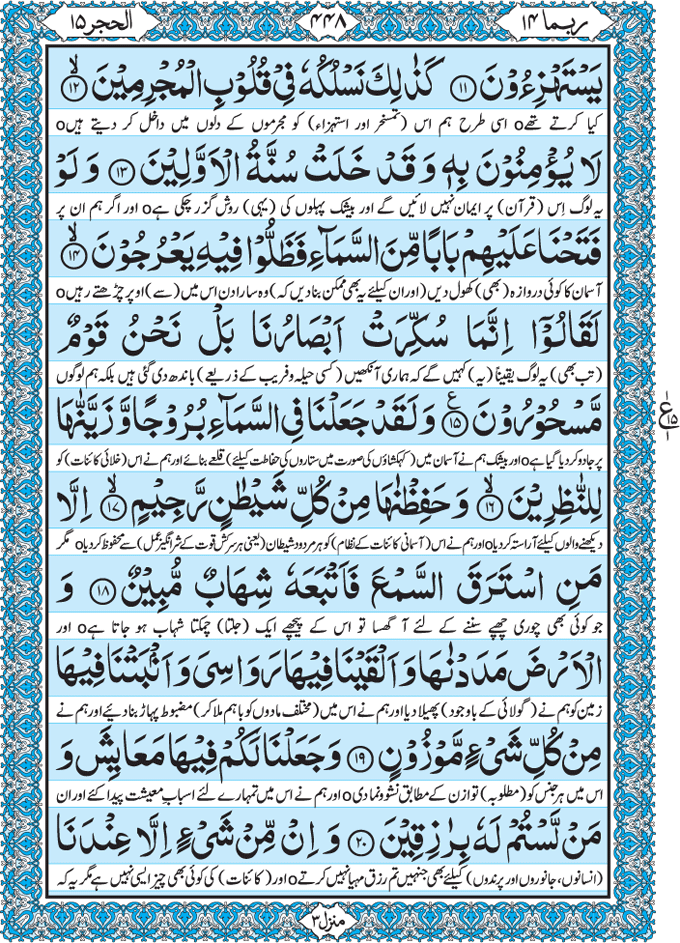 ربما ۱۴
۴۴۸
الحجر ۱۵
يَسْتَهْزِءُوْنَ ﴿۱۱﴾ كَذٰلِكَ نَسْلُكُهٗ فِيْ قُلُوْبِ الْمُجْرِمِيْنَ ﴿۱۲﴾
کیا کرتے تھے o اسی طرح ہم اس (تمسخر اور استہزاء) کو مجرموں کے دلوں میں داخل کر دیتے ہیں o
لَا يُؤْمِنُوْنَ بِهٖ وَ قَدْ خَلَتْ سُنَّةُ الْاَوَّلِيْنَ ﴿۱۳﴾ وَ لَوْ
یہ لوگ اِس (قرآن) پر ایمان نہیں لائیں گے اور بیشک پہلوں کی (یہی) روش گزر چکی ہے o اور اگر ہم ان پر
فَتَحْنَا عَلَيْهِمْ بَابًا مِّنَ السَّمَآءِ فَظَلُّوْا فِيْهِ يَعْرُجُوْنَ ﴿۱۴﴾
آسمان کا کوئی دروازہ (بھی) کھول دیں (اور ان کیلئے یہ بھی ممکن بنا دیں کہ) وہ سارا دن اس میں (سے) اوپر چڑھتے رہیں o
لَقَالُوْٓا اِنَّمَا سُكِّرَتْ اَبْصَارُنَا بَلْ نَحْنُ قَوْمٌ
(تب بھی) یہ لوگ یقیناً (یہ) کہیں گے کہ ہماری آنکھیں (کسی حیلہ و فریب کے ذریعے) باندھ دی گئی ہیں بلکہ ہم لوگوں
مَّسْحُوْرُوْنَ ﴿۱۵﴾ وَ لَقَدْ جَعَلْنَا فِي السَّمَآءِ بُرُوْجًا وَّ زَيَّنّٰهَا
ع
۱۵
پر جادو کر دیا گیا ہے o اور بیشک ہم نے آسمان میں (کہکشاؤں کی صورت میں ستاروں کی حفاظت کیلئے) قلعے بنائے اور ہم نے اس (خلائی کائنات) کو
لِلنّٰظِرِيْنَ ﴿۱۶﴾ وَ حَفِظْنٰهَا مِنْ كُلِّ شَيْطٰنٍ رَّجِيْمٍ ﴿۱۷﴾ اِلَّا
دیکھنے والوں کیلئے آراستہ کر دیا o اور ہم نے اس (آسمانی کائنات کے نظام) کو ہر مردود شیطان (یعنی ہر سرکش قوت کے شرانگیز عمل) سے محفوظ کر دیا o مگر
مَنِ اسْتَرَقَ السَّمْعَ فَاَتْبَعَهٗ شِهَابٌ مُّبِيْنٌ ﴿۱۸﴾ وَ
جو کوئی بھی چوری چھپے سننے کے لئے آ گھسا تو اس کے پیچھے ایک (جلتا) چمکتا شہاب ہو جاتا ہے o اور
الْاَرْضَ مَدَدْنٰهَا وَ اَلْقَيْنَا فِيْهَا رَوَاسِيَ وَ اَنْۢبَتْنَا فِيْهَا
زمین کو ہم نے (گولائی کے باوجود) پھیلا دیا اور ہم نے اس میں (مختلف مادوں کو باہم ملا کر) مضبوط پہاڑ بنا دیئے اور ہم نے
مِنْ كُلِّ شَيْءٍ مَّوْزُوْنٍ ﴿۱۹﴾ وَ جَعَلْنَا لَكُمْ فِيْهَا مَعَايِشَ وَ
اس میں ہر جنس کو (مطلوبہ) توازن کے مطابق نشو و نما دی o اور ہم نے اس میں تمہارے لئے اسبابِ معیشت پیدا کئے اور ان
مَنْ لَّسْتُمْ لَهٗ بِرٰزِقِيْنَ ﴿۲۰﴾ وَ اِنْ مِّنْ شَيْءٍ اِلَّا عِنْدَنَا
(انسانوں، جانوروں اور پرندوں) کیلئے بھی جنہیں تم رزق مہیا نہیں کرتے o اور (کائنات) کی کوئی بھی چیز ایسی نہیں ہے مگر یہ کہ
منزل ۳